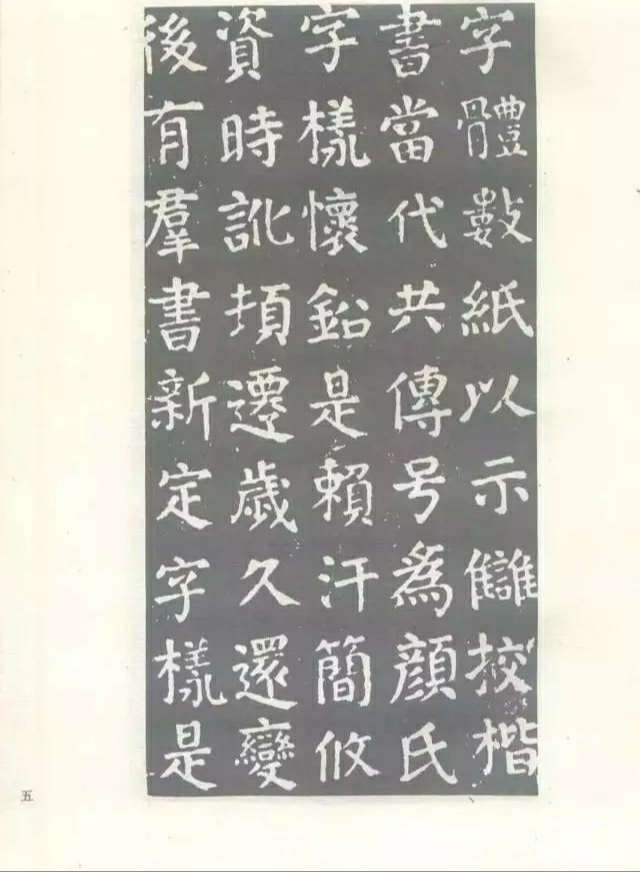 字體數紙以示讎挍楷
書當代共傳号為顔氏
字樣懷鉛是賴汗簡攸
資時訛頓遷歲久還變
後有羣書新定字樣是
五